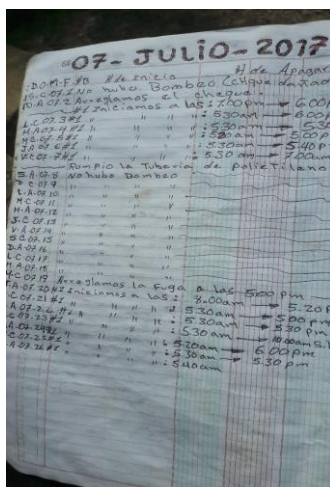 07-JULIO-2017
D.O-M-F #B H de inicio H de Apagar
No hubo Bombeo (cheque dañado
D-A.07.2 Arreglamos el cheque.
#1 Iniciamos a las: 1:00pm → 6:00
L.C.07.3#1 " " " " : 5:30am → 6:00
M.A.07.4#1 " " " " : 5:30am →
M.C.07.5#1 " " " " : 5:20am → 5:00 P
J.A.07.6#1 " " " " : 5:30am → 5:40 P
V.C.07.7#1 " " " " : 5:30am → 7:00am
Rompio la Tuberia de polietileno
S.A.07.8 No hubo Bombeo
D.C.07.9 " " "
L.A.07.10 " " "
M.C.07.11 " " "
M.A.07.12 " " "
J.C.07.13 " " "
V.A.07.14 " " "
S.C.07.15 " " "
D.A.07.16 " " "
L.C.07.17 " " "
M.A.07.18 " " "
M.C.07.19 Arreglamos la Fuga a las 5:00 pm
J.A.07.20#1 Iniciamos a las: 8:00am → 5:20 P
C.07.21#1 " " " " : 5:30am → 5:00 pm
" " " " : 5:30am → 5:30 pm
C.07.23#1 " " " " : 5:30am → 10:00am
" " " " : 5:20am → 6:00 pm
C.07.25#1 " " " " : 5:30am → 5:30 pm
A.07.26#1 " " " " : 5:40am